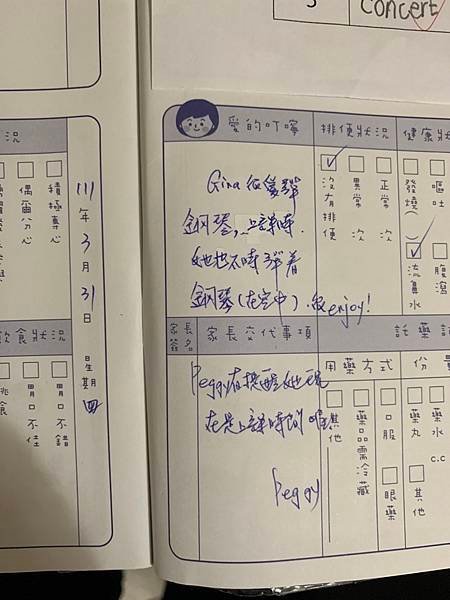 Concert
愛的叮嚀
排便狀況
健康狀
沒有排便
異常 次
正常 次
發燒( )
嘔吐
流鼻水
腹瀉
Gina 很愛彈
鋼琴,上課時.
她也不時彈着
鋼琴(在空中).很enjoy!
家長簽名
家長交代事項
託藥
用藥方式
份
Peggy有提醒她現
在是上課時間喔
Peggy
其他
藥品需冷藏
口服
眼藥
藥丸
藥水 c.c
其他
況
偶爾分心
積極專心
111年3月31日 星期四
飲食狀況
挑食
胃口不佳
胃口不錯